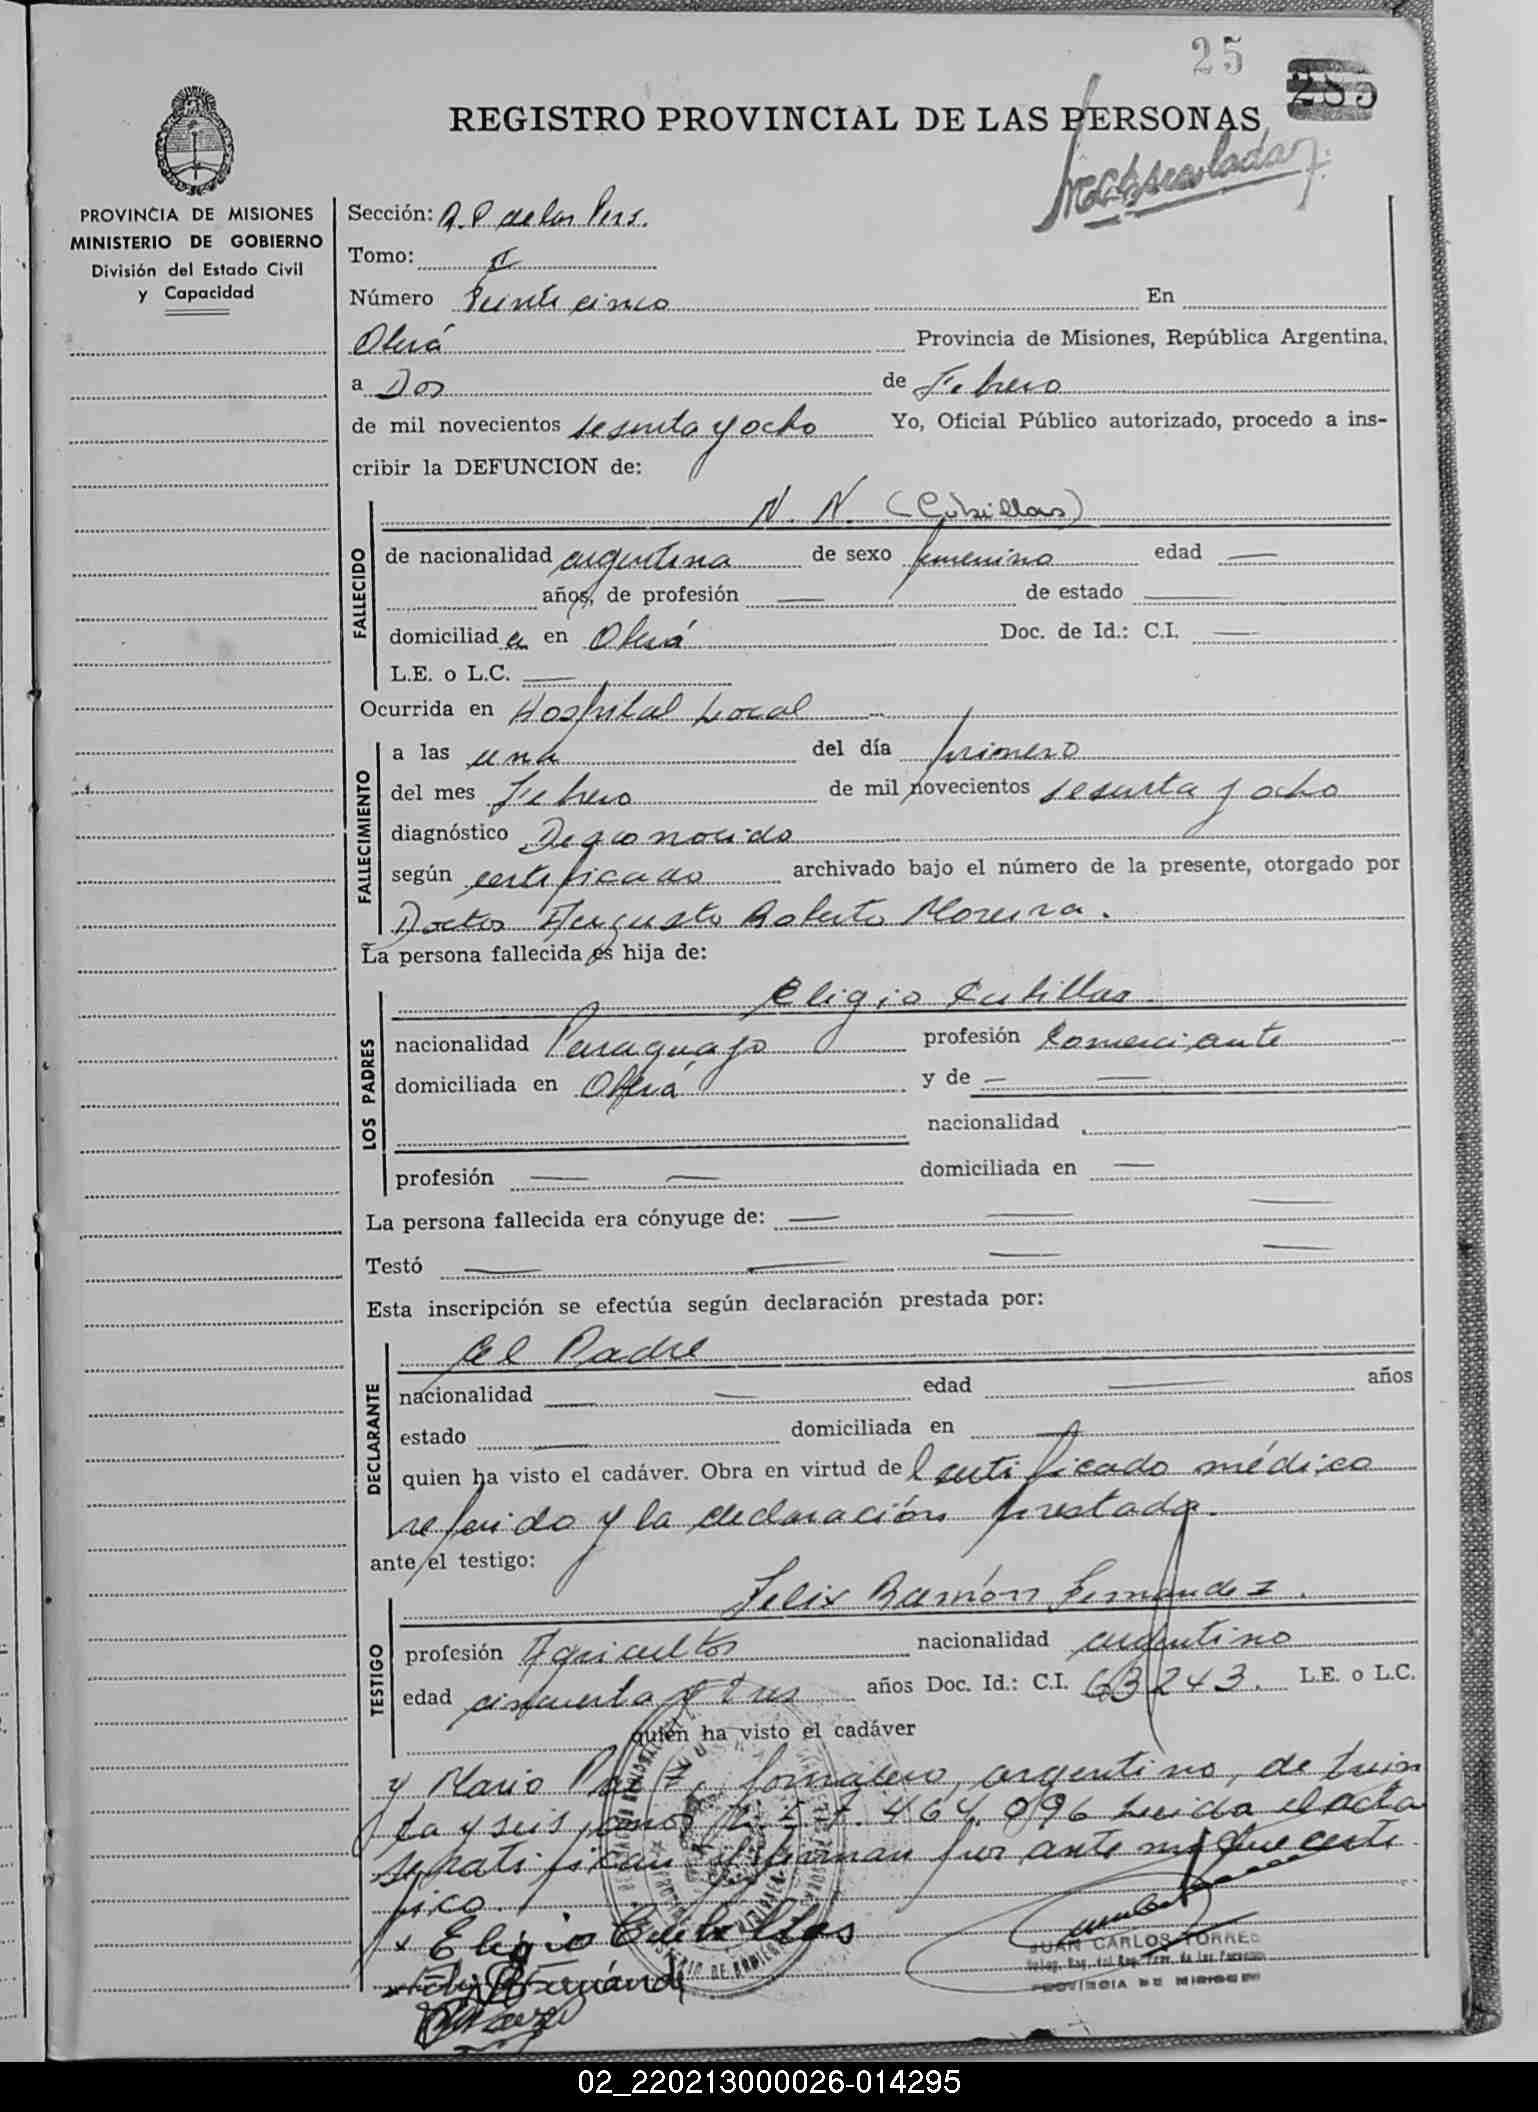 25
285
REGISTRO PROVINCIAL DE LAS PERSONAS
PROVINCIA DE MISIONES
MINISTERIO DE GOBIERNO
División del Estado Civil
y Capacidad
Sección: R.P de las Pers.
Tomo: I
Número Veinte cinco En
Oberá Provincia de Misiones, República Argentina,
a Dos de Febrero
de mil novecientos sesenta y ocho Yo, Oficial Público autorizado, procedo a ins-
cribir la DEFUNCION de:
FALLECIDO
N. N. (Cubillas)
de nacionalidad argentina de sexo femenino edad —
años, de profesión — de estado —
domiciliad a en Oberá Doc. de Id.: C.I. —
L.E. o L.C. —
Ocurrida en Hospital Local
FALLECIMIENTO
a las una del día primero
del mes Febrero de mil novecientos sesenta y ocho
diagnóstico Desconocido
según certificado archivado bajo el número de la presente, otorgado por
Doctor Augusto Roberto Moreira.
La persona fallecida es hija de:
LOS PADRES
Eligio Cubillas
nacionalidad Paraguayo profesión Comerciante
domiciliada en Oberá y de — —
nacionalidad
profesión — — domiciliada en —
La persona fallecida era cónyuge de: — — —
Testó — — — —
Esta inscripción se efectúa según declaración prestada por:
DECLARANTE
el Padre
nacionalidad — — edad — años
estado — domiciliada en —
quien ha visto el cadáver. Obra en virtud de l certificado médico
referido y la declaración prestada.
ante el testigo:
TESTIGO
Felix Ramón Fernandez.
profesión Agricultor nacionalidad argentino
edad cincuenta y tres años Doc. Id.: C.I. 63243. L.E. o L.C.
quien ha visto el cadáver
y Mario jornalero, argentino, de trein
ta y seis años 7.464.096 Leida el acta
se ratifican y firman por ante mi que certi
fico.
x Eligio Cubillas
JUAN CARLOS TORRES
PROVINCIA DE MISIONES
02_220213000026-014295